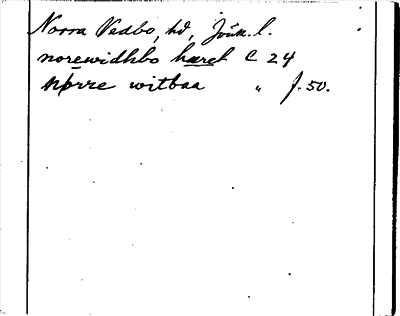 Norra Vedbo, hd, Jönk. l.
norewidhbo hæret C 24
nørre witbaa " f. 50.